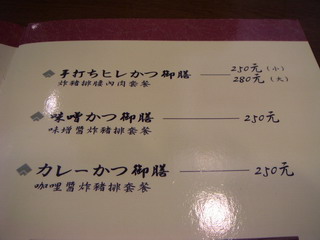 手打ちヒレかつ御膳 250元（小）
炸豬排腰內肉套餐 280元（大）
味噌かつ御膳 250元
味增醬炸豬排套餐
カレーかつ御膳 250元
咖哩醬炸豬排套餐